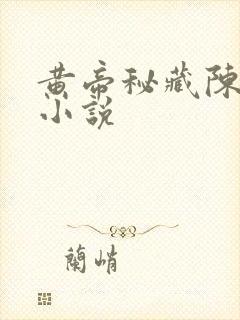 黄帝秘藏陳
小說
蘭峭